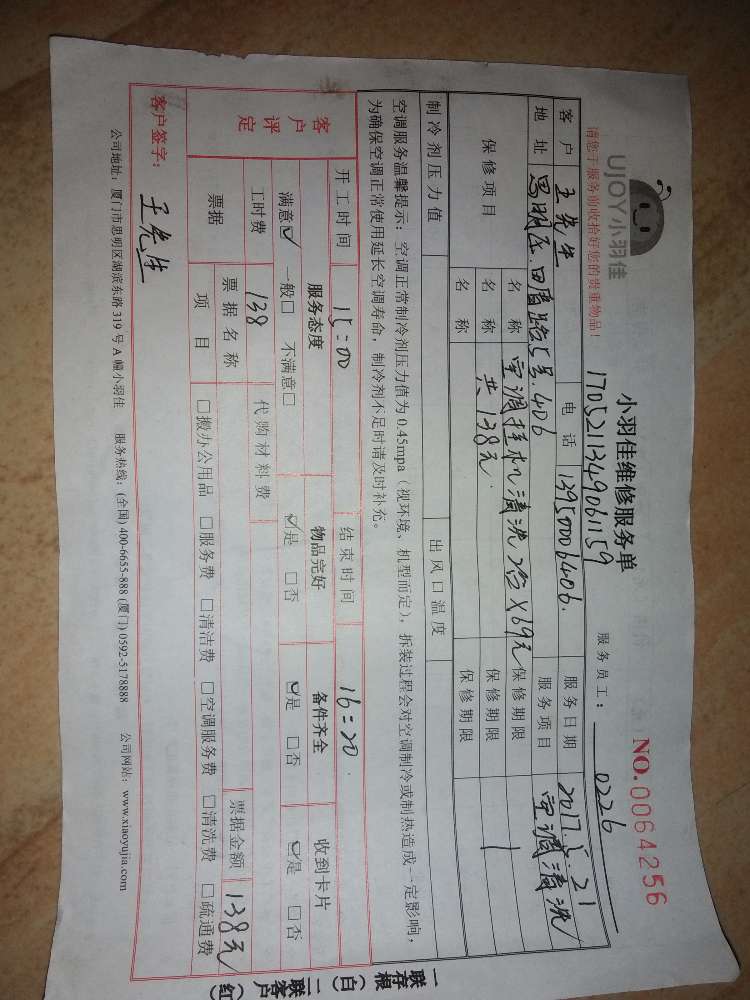 UJOY小羽佳
小羽佳维修服务单
NO.0064256
1705211349061159
服务员工：0226
请您于服务前收拾好您的贵重物品！
客户 王先生 电话 13950006406. 服务日期 2017.5.21
地址 思明区. 5号.406 服务项目 空调清洗
保修项目 名称 空调挂机清洗2台×69元 保修期限
名称 共138元. 保修期限
名称 保修期限
制冷剂压力值 出风口温度
空调服务温馨提示：空调正常制冷剂压力值为0.45mpa（视环境、机型而定），拆装过程会对空调制冷或制热造成一定影响，
为确保空调正常使用延长空调寿命，制冷剂不足时请及时补充。
开工时间 15:00 结束时间 16:20
客户评定
服务态度 物品完好 备件齐全 收到卡片
满意☑ 一般□ 不满意□ ☑是 □否 ☑是 □否 ☑是 □否
工时费 138 代购材料费 票据金额 138元
票据 票据名称
项目 □搬办公用品 □服务费 □清洁费 □空调服务费 □清洗费 □疏通费
客户签字：王先生
公司地址：厦门市思明区湖滨东路319号A幢小羽佳 服务热线：(全国) 400-6655-888 (厦门) 0592-5178888 公司网站：www.xiaoyujia.com
一联存根（白）二联客户（红）